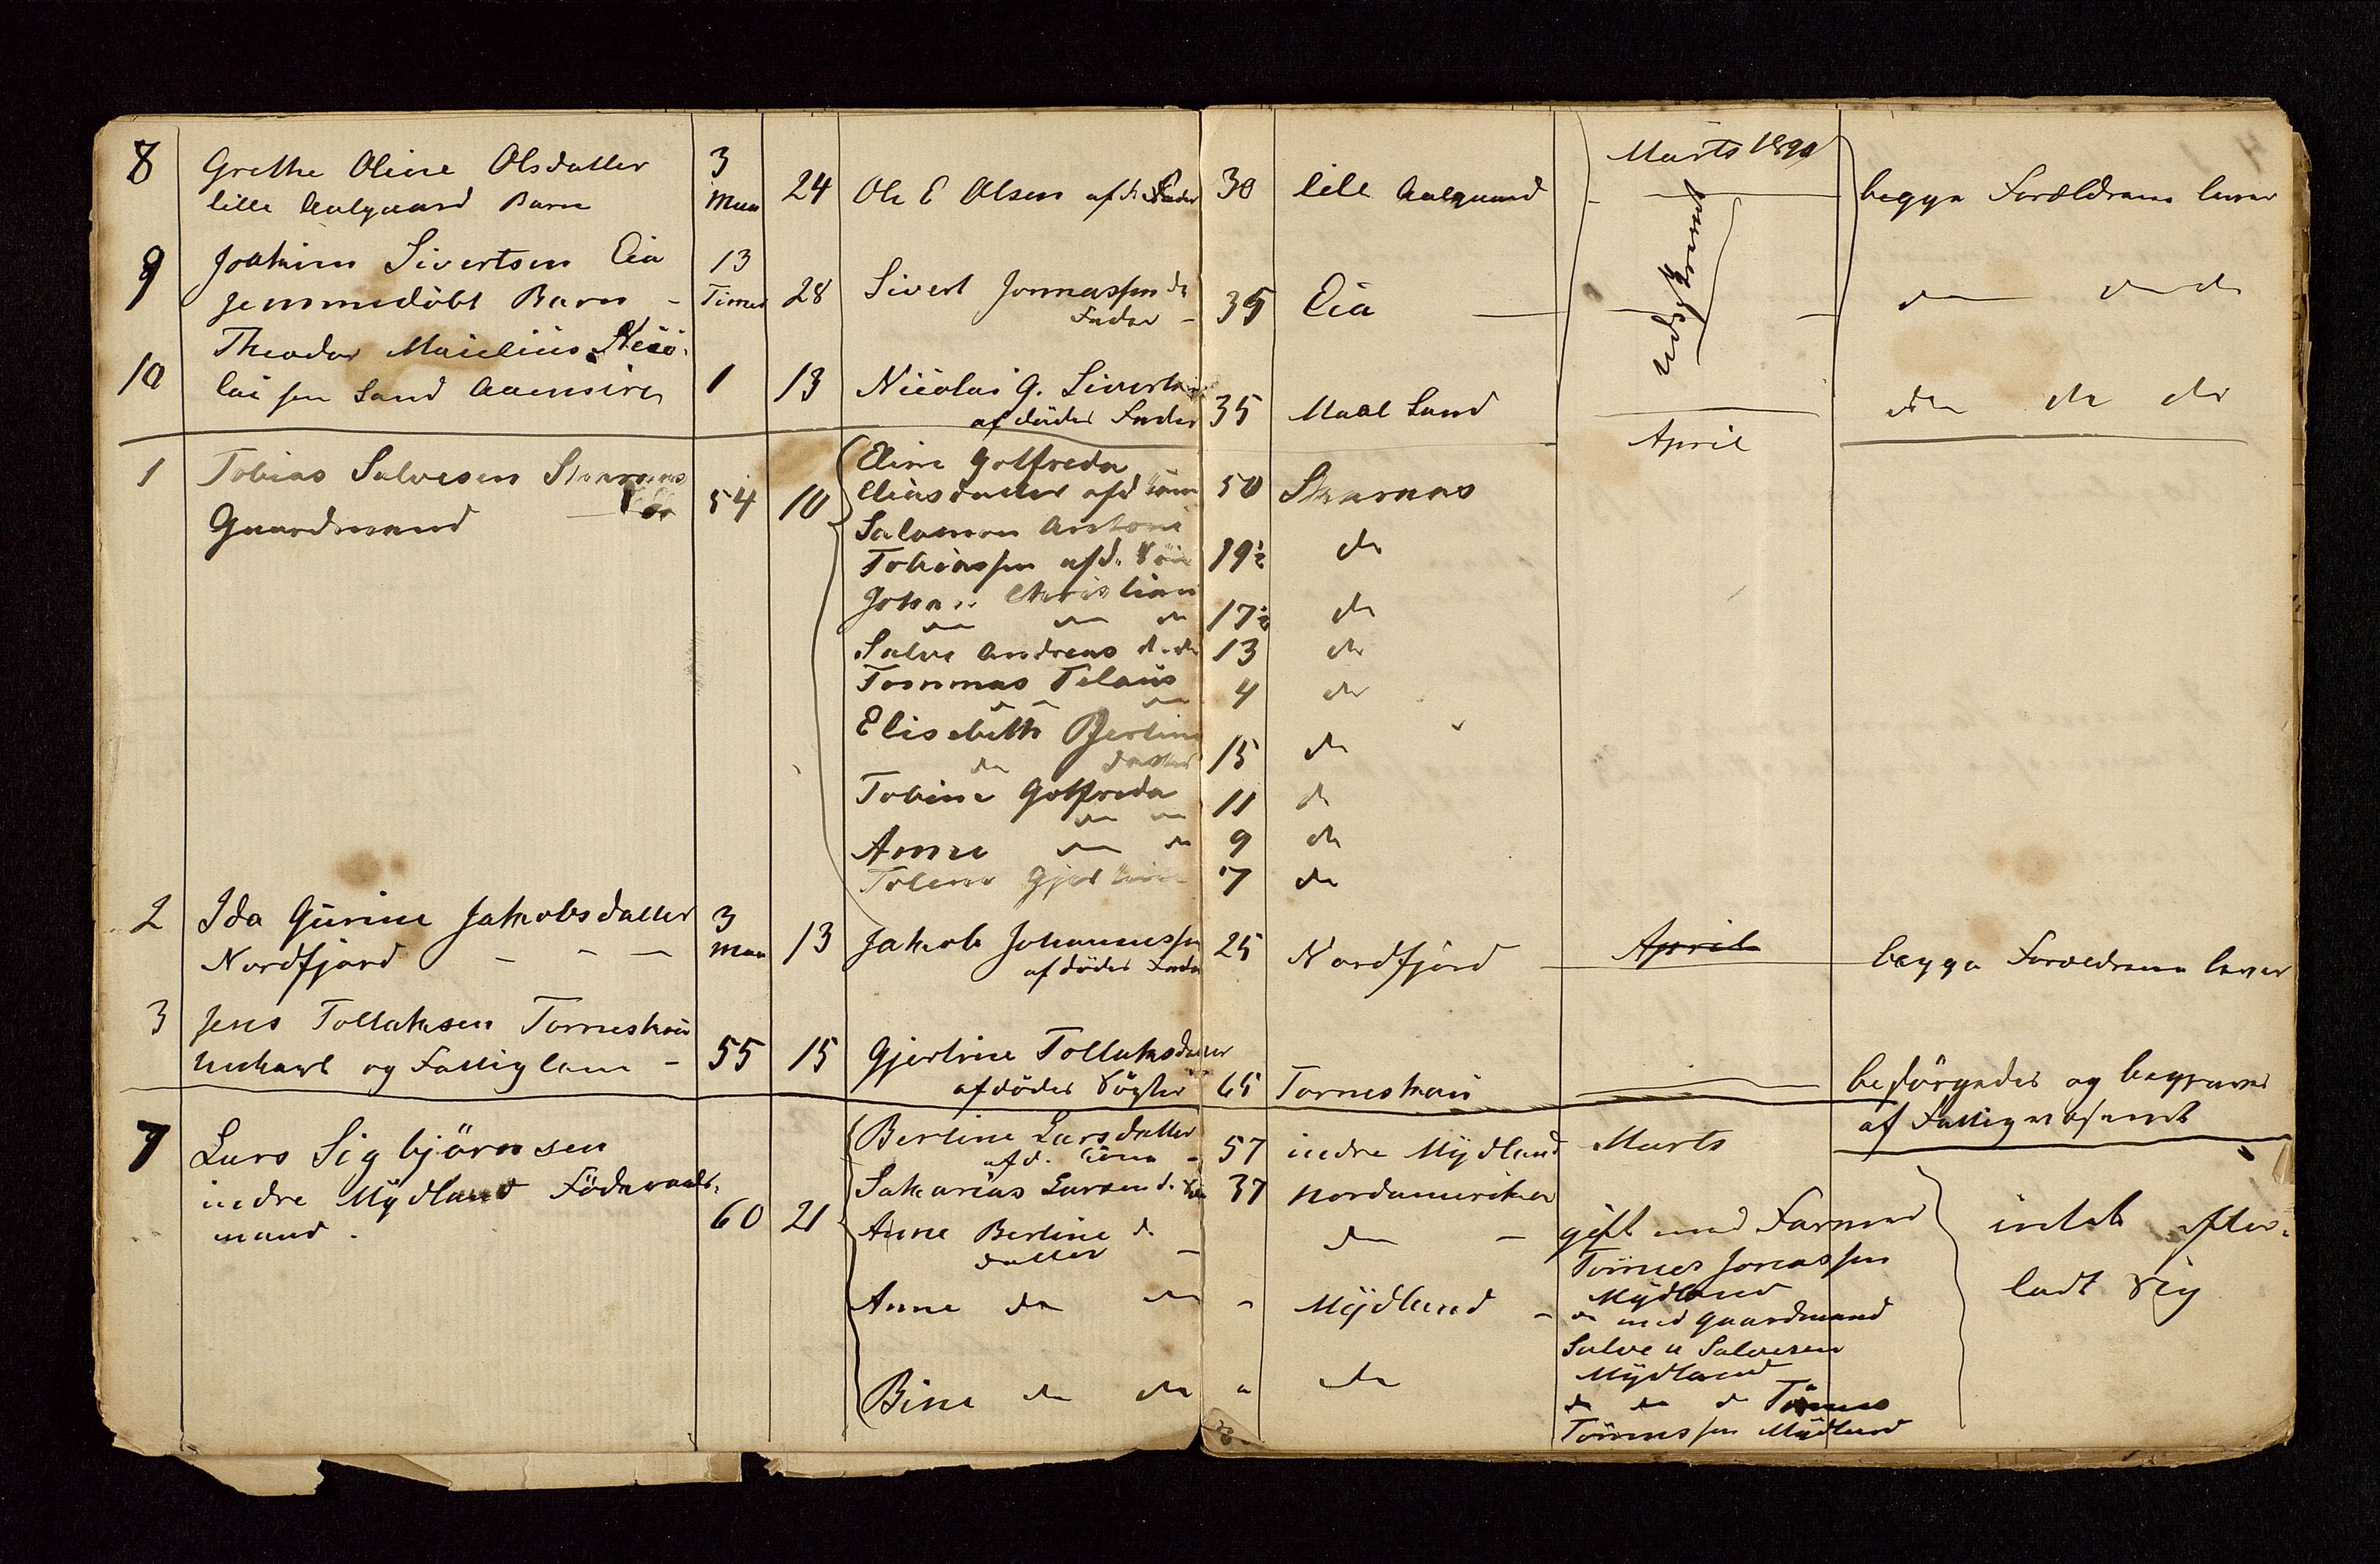 Marts 1890
8 Grethe Oline Olsdatter 3
lille Aalgaard Barn Maa 24 Ole E Olsen afd. Fader 30 lille Aalgaard begge Forældrene lever
9 Joakim Sivertsen Eia 13
hjemmedöbt Barn - Timer 28 Sivert Jonnassen do 35 Eia do do do
Fader -
udskrevet
Theodor
10 laisen Sand Aaensire 1 13 Nicolai G. Sivertsen 35 Maal Sand do do do
afdödes Fader
April
1 Tobias Salvesen Skarnas 54 10 Eline Gotfreda
Gaardmand Eliasdatter afd Kone 50 Skarnas
Salamon Antoni
Tobiassen afd. Sön 19½ do
Johan Christian
do do do 17½ do
Salve Andreas do do 13 do
Tommas Tilaus
do do 4 do
Elisebeth Bertine
do datter 15 do
Tobine Gotfreda
do do 11 do
Anne do do 9 do
Tolene 7 do
2 Ida Gurine Jakobsdatter 3
Nordfjord - - - Maa 13 Jakob Johannessen 25 Nordfjord April begge Forældrene lever
afdödes Fader
3 Jens Tollaksen Torneskaii
Ungkarl og Fattiglem - 55 15 Gjertine Tollaksdatter
afdödes Söster 65 Torneskaii besörgedes og begraves
af Fattigvæsenet
7 Lars Sigbjörnsen Bertine Larsdatter
afd. Kone - 57 indre Mydland Marts
indre Mydland Föderaads- Sakarias Larsen d. Sön 37 Nordamerika
mand. 60 21 Anne Bertine do
datter - do - gift med Farmer intet efter-
Tönnes Jonassen
Mydland
Anne do do " Mydland - do med Gaardmand ladt sig
Salve A Salvesen
Mydland
Bine do do " do do do d Tönnes
Tönnessen Mydland